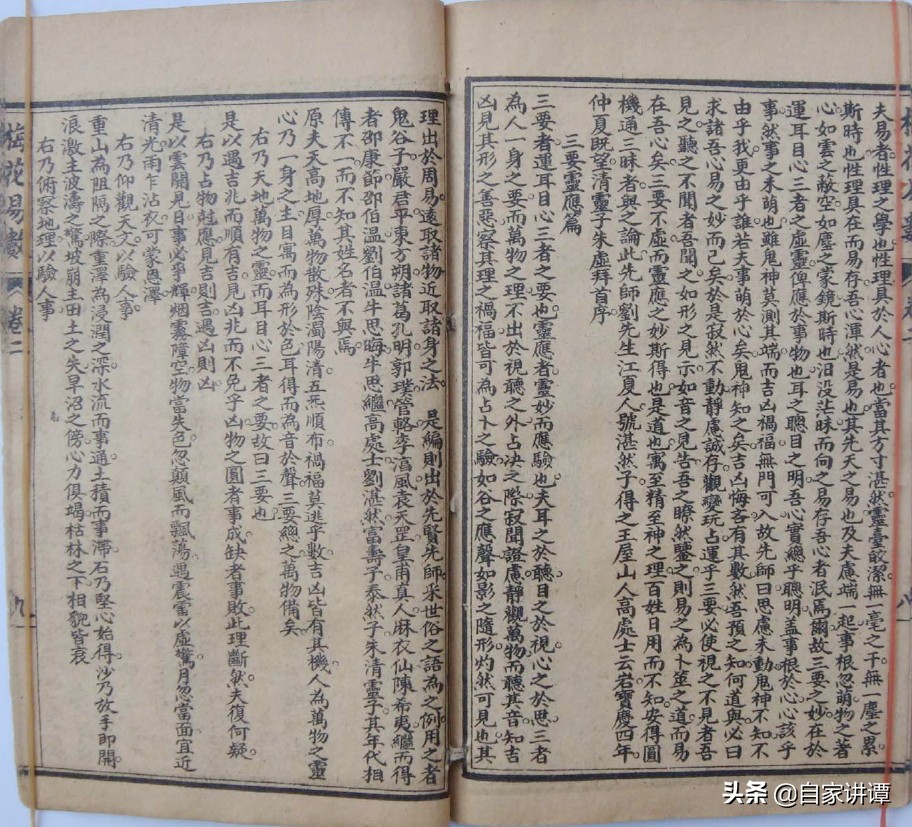 夫易者性理之學也性理具於人心者也當其方寸湛然靈臺皎潔無一毫之干無一塵之累
斯時也性理具在而易存吾心渾然是易也其先天之易也及夫慮端一起事根忽萌物之著
心如雲之蔽空如塵之蒙鏡斯時也汨沒茫昧而向之易存吾心者泯焉爾故三要之妙在於
運耳目心三者之虛靈俾應於事物也耳之聰目之明吾心實總乎聰明蓋事根於心心該乎
事然事之未萌也雖鬼神莫測其端而吉凶禍福無門可入故先師曰思慮未動鬼神不知不
由乎我更由乎誰若夫事萌於心矣鬼神知之矣吉凶悔吝有其數然吾預之知何道與必曰
求諸吾心易之妙而已矣於是寂然不動靜慮誠存觀變玩占運乎三要必使視之不見者吾
見之聽之不聞者吾聞之如形之見示如音之見告吾之瞭然鑒之則易之為卜筮之道而易
在吾心矣三要不虛而靈應之妙斯得也是道也寓至精至神之理百姓日用而不知安得圓
機通三昧者與之論此先師劉先生江夏人號湛然子得之王屋山人高處士云岩寶慶四年
仲夏既望清靈子朱虛拜首序
三要靈應篇
三要者運耳目心三者之要也靈應者靈妙而應驗也夫耳之於聽目之於視心之於思三者
為人一身之要而萬物之理不出於視聽之外占決之際寂聞證慮靜觀萬物而聽其音知吉
凶見其形之善惡察其理之禍福皆可為占卜之驗如谷之應聲如影之隨形灼然可見也其
理出於周易遠取諸物近取諸身之法 是編則出於先賢先師采世俗之語為之例用之者
鬼谷子嚴君平東方朔諸葛孔明郭璞管輅李淳風袁天罡皇甫真人麻衣仙陳希夷繼而得
者邵康節邵伯溫劉伯溫牛思晦牛思繼高處士劉湛然富壽子泰然子朱清靈子其年代相
傳不一而不知其姓名者不與焉
原夫天高地厚萬物散殊陰濁陽清五炁順布禍福莫逃乎數吉凶皆有其機人為萬物之靈
心乃一身之主目寓而為形於色耳得而為音於聲三要總之萬物備矣
右乃天地萬物之靈而耳目心三者之要故曰三要也
是以遇吉兆而順有吉見凶兆而不免乎凶物之圓者事成缺者事敗此理斷然夫復何疑
右乃占物尅應見吉則吉遇凶則凶
是以雲開見日事必爭輝烟霧障空物當失色忽顛風而飄蕩遇震雷以虛驚月忽當面宜近
清光雨乍沾衣可蒙恩澤
右乃仰觀天文以驗人事
重山為阻隔之際重澤為浸潤之深水流而事通土積而事滯石乃堅心始得沙乃放手即開
浪激主波濤之驚坡崩主田土之失旱沼之傍心力俱竭枯林之下相貌皆衰
右乃俯察地理以驗人事
梅花易數
卷二
九
八
头条 @自家讲谭